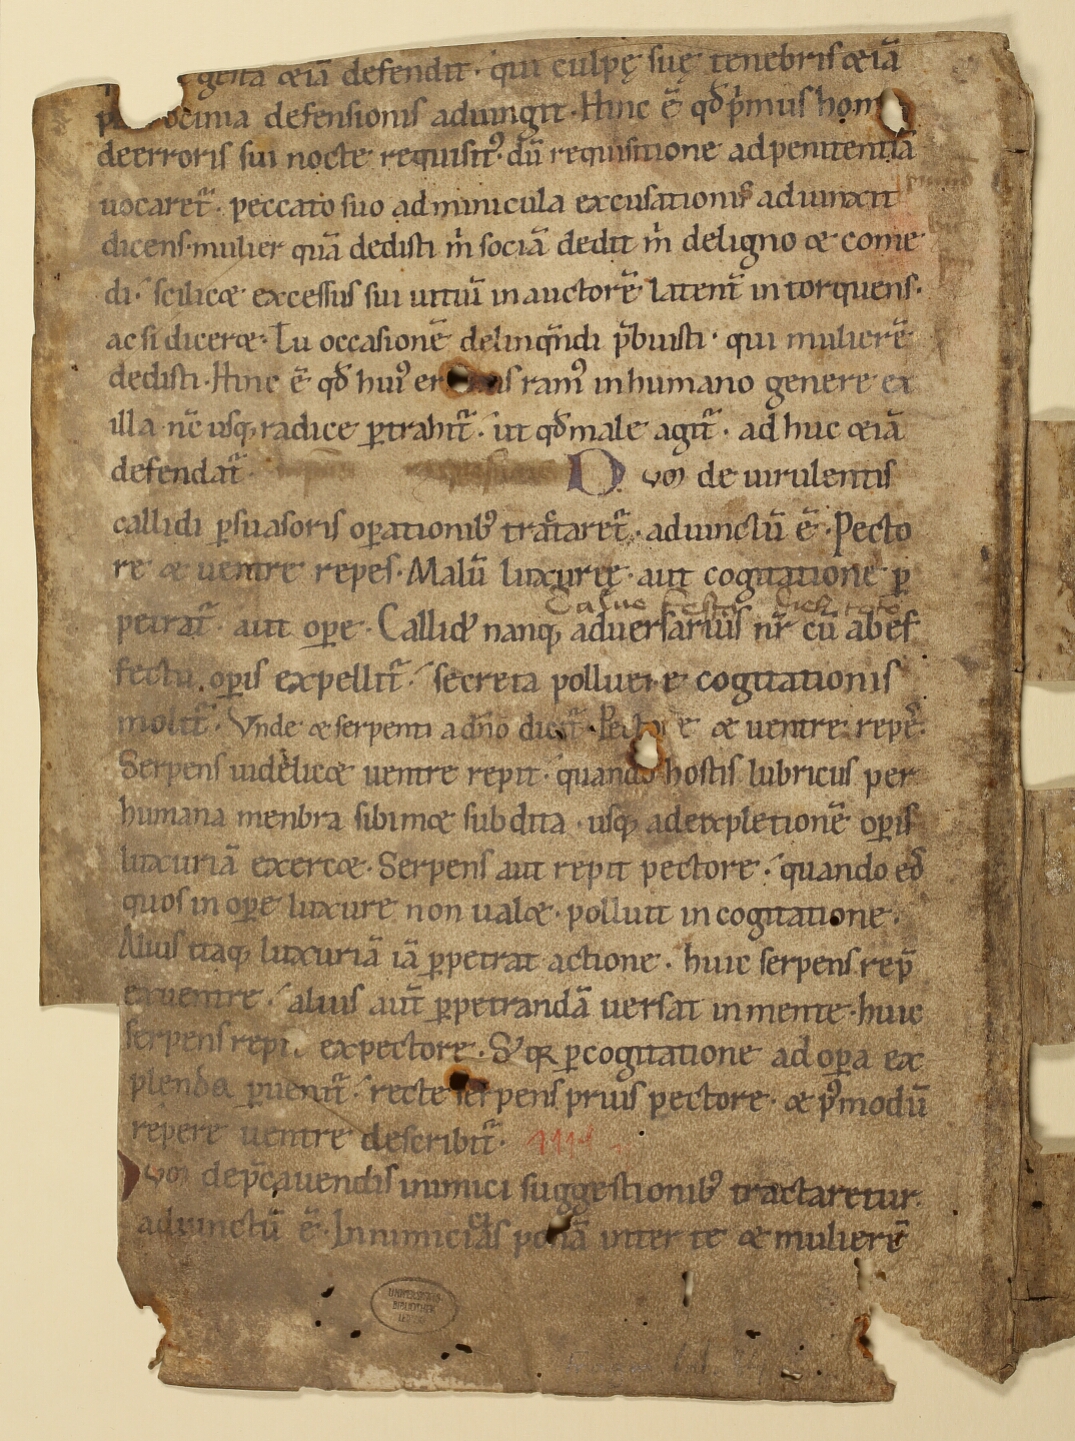 gesta &iā defendit· qui culpę suę tenebris &iā
p ocinia defensionis adiungit· Hinc ē qđ p̄mus hom
de erroris sui nocte requisit᷒· dū requisitione ad penitentiā
uocaret̄· peccato suo adminicula excusationis adiunxit
dicens· mulier quā dedisti m̄ sociā dedit m̄ de ligno & come
di· scilic& excessus sui uitiū in auctorē latent̄ intorquens·
ac si dicer&· Tu occasionē delinq̄ndi p̄buisti· qui mulierē
dedisti· Hinc ē qđ hui᷒ er is ram᷒ in humano genere ex
illa nc̄ usq; radice ꝑtrahit̄· ut qđ male agit̄· adhuc &iā
defendat̄· Quo de uirulentis
callidi ꝑsuasoris oꝑationib᷒ tractaret̄· adiunctū ē· Pecto
re & uentre repes· Malū luxurię· aut cogitatione ꝑ
petrat̄· aut oꝑe· Callid᷒ nanq; aduersarius nr̄ cū ab ef
fectu oꝑis expellit̄· secreta polluere cogitationis
molit̄· Vnde & serpenti a dn̄o dicit̄· Pectore & uentre repē·
Serpens uidelic& uentre repit· quando hostis lubricus per
humana menbra sibim& subdita· usq; ad expletionē oꝑis
luxuriā exerc&· Serpens aut repit pectore· quando eos
quos in oꝑe luxurie non ual&· polluit in cogitatione·
Alius itaq; luxuriā iā ꝑpetrat actione· huic serpens rep̄
ex uentre· alius aut̄ ꝑpetrandā uersat in mente· huic
serpens repi ex pectore· S; qꝛ ꝑ cogitationē ad oꝑa ex
plenda ꝑuenit̄· recte serpens prius pectore· & p᷒modū
repere uentre describit̄·
Quo de p̄cauendis inimici suggestionib᷒ tractaretur·
adiunctū ē· Inimicitias ponā inter te & mulierē
UNIVERSITÄTS-
BIBLIOTHEK
LEIPZIG